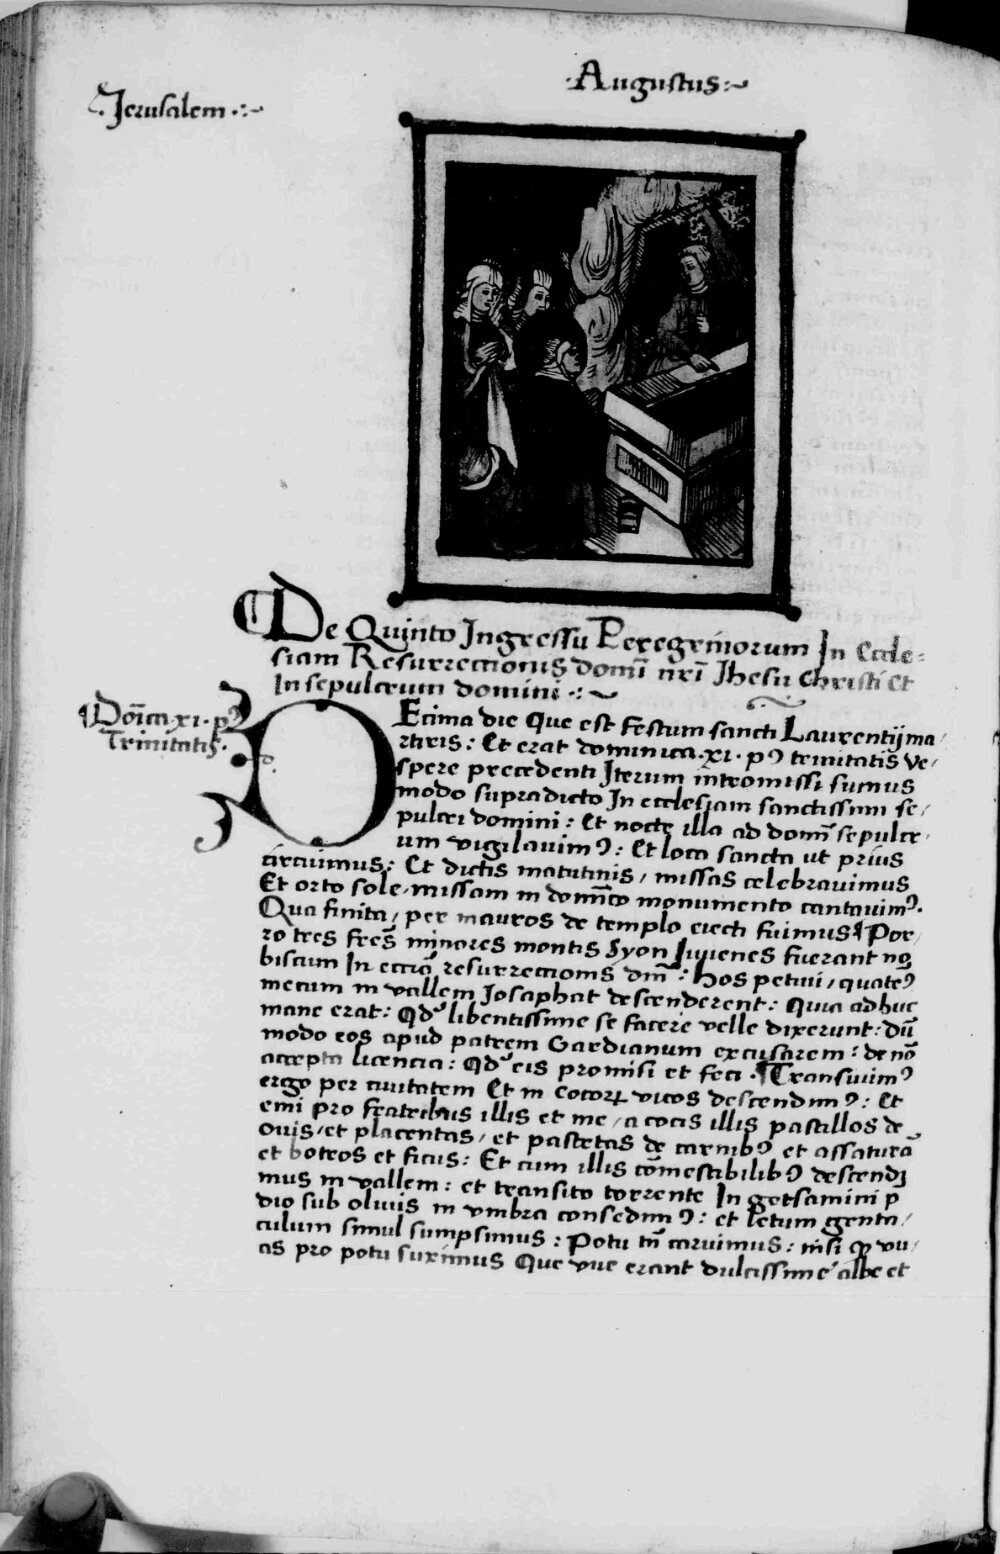 Jerusalem
Augustus
De Quinto Ingressu Peregrinorum In Eccle=
siam Resurrectionis domi nri Jhesu Christi Et
In sepulcrum domini
Doica xi. pꝰ
Trinitatis.
DEcima die Que est festum sancti Laurentij ma/
rtiris: Et erat dominica .xi. pꝰ trinitatis Ve/
spere precedenti Iterum intromissi sumus
modo supradicto In ecclesiam sanctissimi se/
pulcri domini: Et nocte illa ad domi sepulcr/
um vigilauimꝰ: Et loca sancta ut prius
circuimus: Et dictis matutinis, missas celebrauimus
Et orto sole, missam in domico monumento cantauimꝰ.
Qua finita, per mauros de templo eiecti fuimus ¶ Por/
ro tres fres minores montis Syon Iuuenes fuerant no
biscum In eccia resurrectionis dni: Hos petiui, quatꝰ
mecum in vallem Josaphat descenderent: Quia adhuc
mane erat: Qd libentissime se facere velle dixerunt: dū
modo eos apud patrem Gardianum excusarem: de nō
accepta licencia: Qd eis promisi et feci. ¶ Transiuimꝰ
ergo per ciuitatem Et in cocorꝝ vicos descendimꝰ: Et
emi pro fratribus illis et me, a cocis illis pastillos de
ouis, et placentas, et pastetas de carnibꝰ et assaturā
et botros et ficus: Et cum illis cōmestibilibꝰ descendi
mus in vallem: et transito torrente In getsamini p
dio sub oliuis in vmbra consedimꝰ: et letum genta/
culum simul sumpsimus: Potu tn caruimus: nisi qꝫ vu/
as pro potu suximus Que vue erant dulcissime albe et